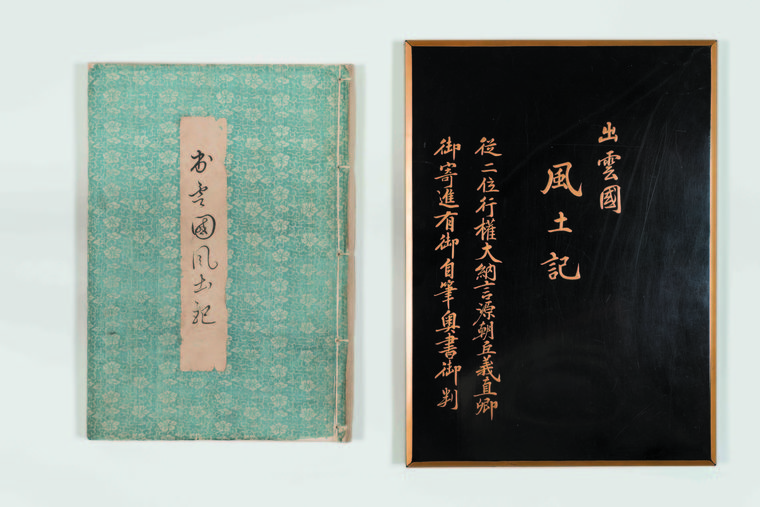 出雲國風土記
出雲國
風土記
従二位行權大納言源朝臣義直卿
御寄進有御自筆奥書御判